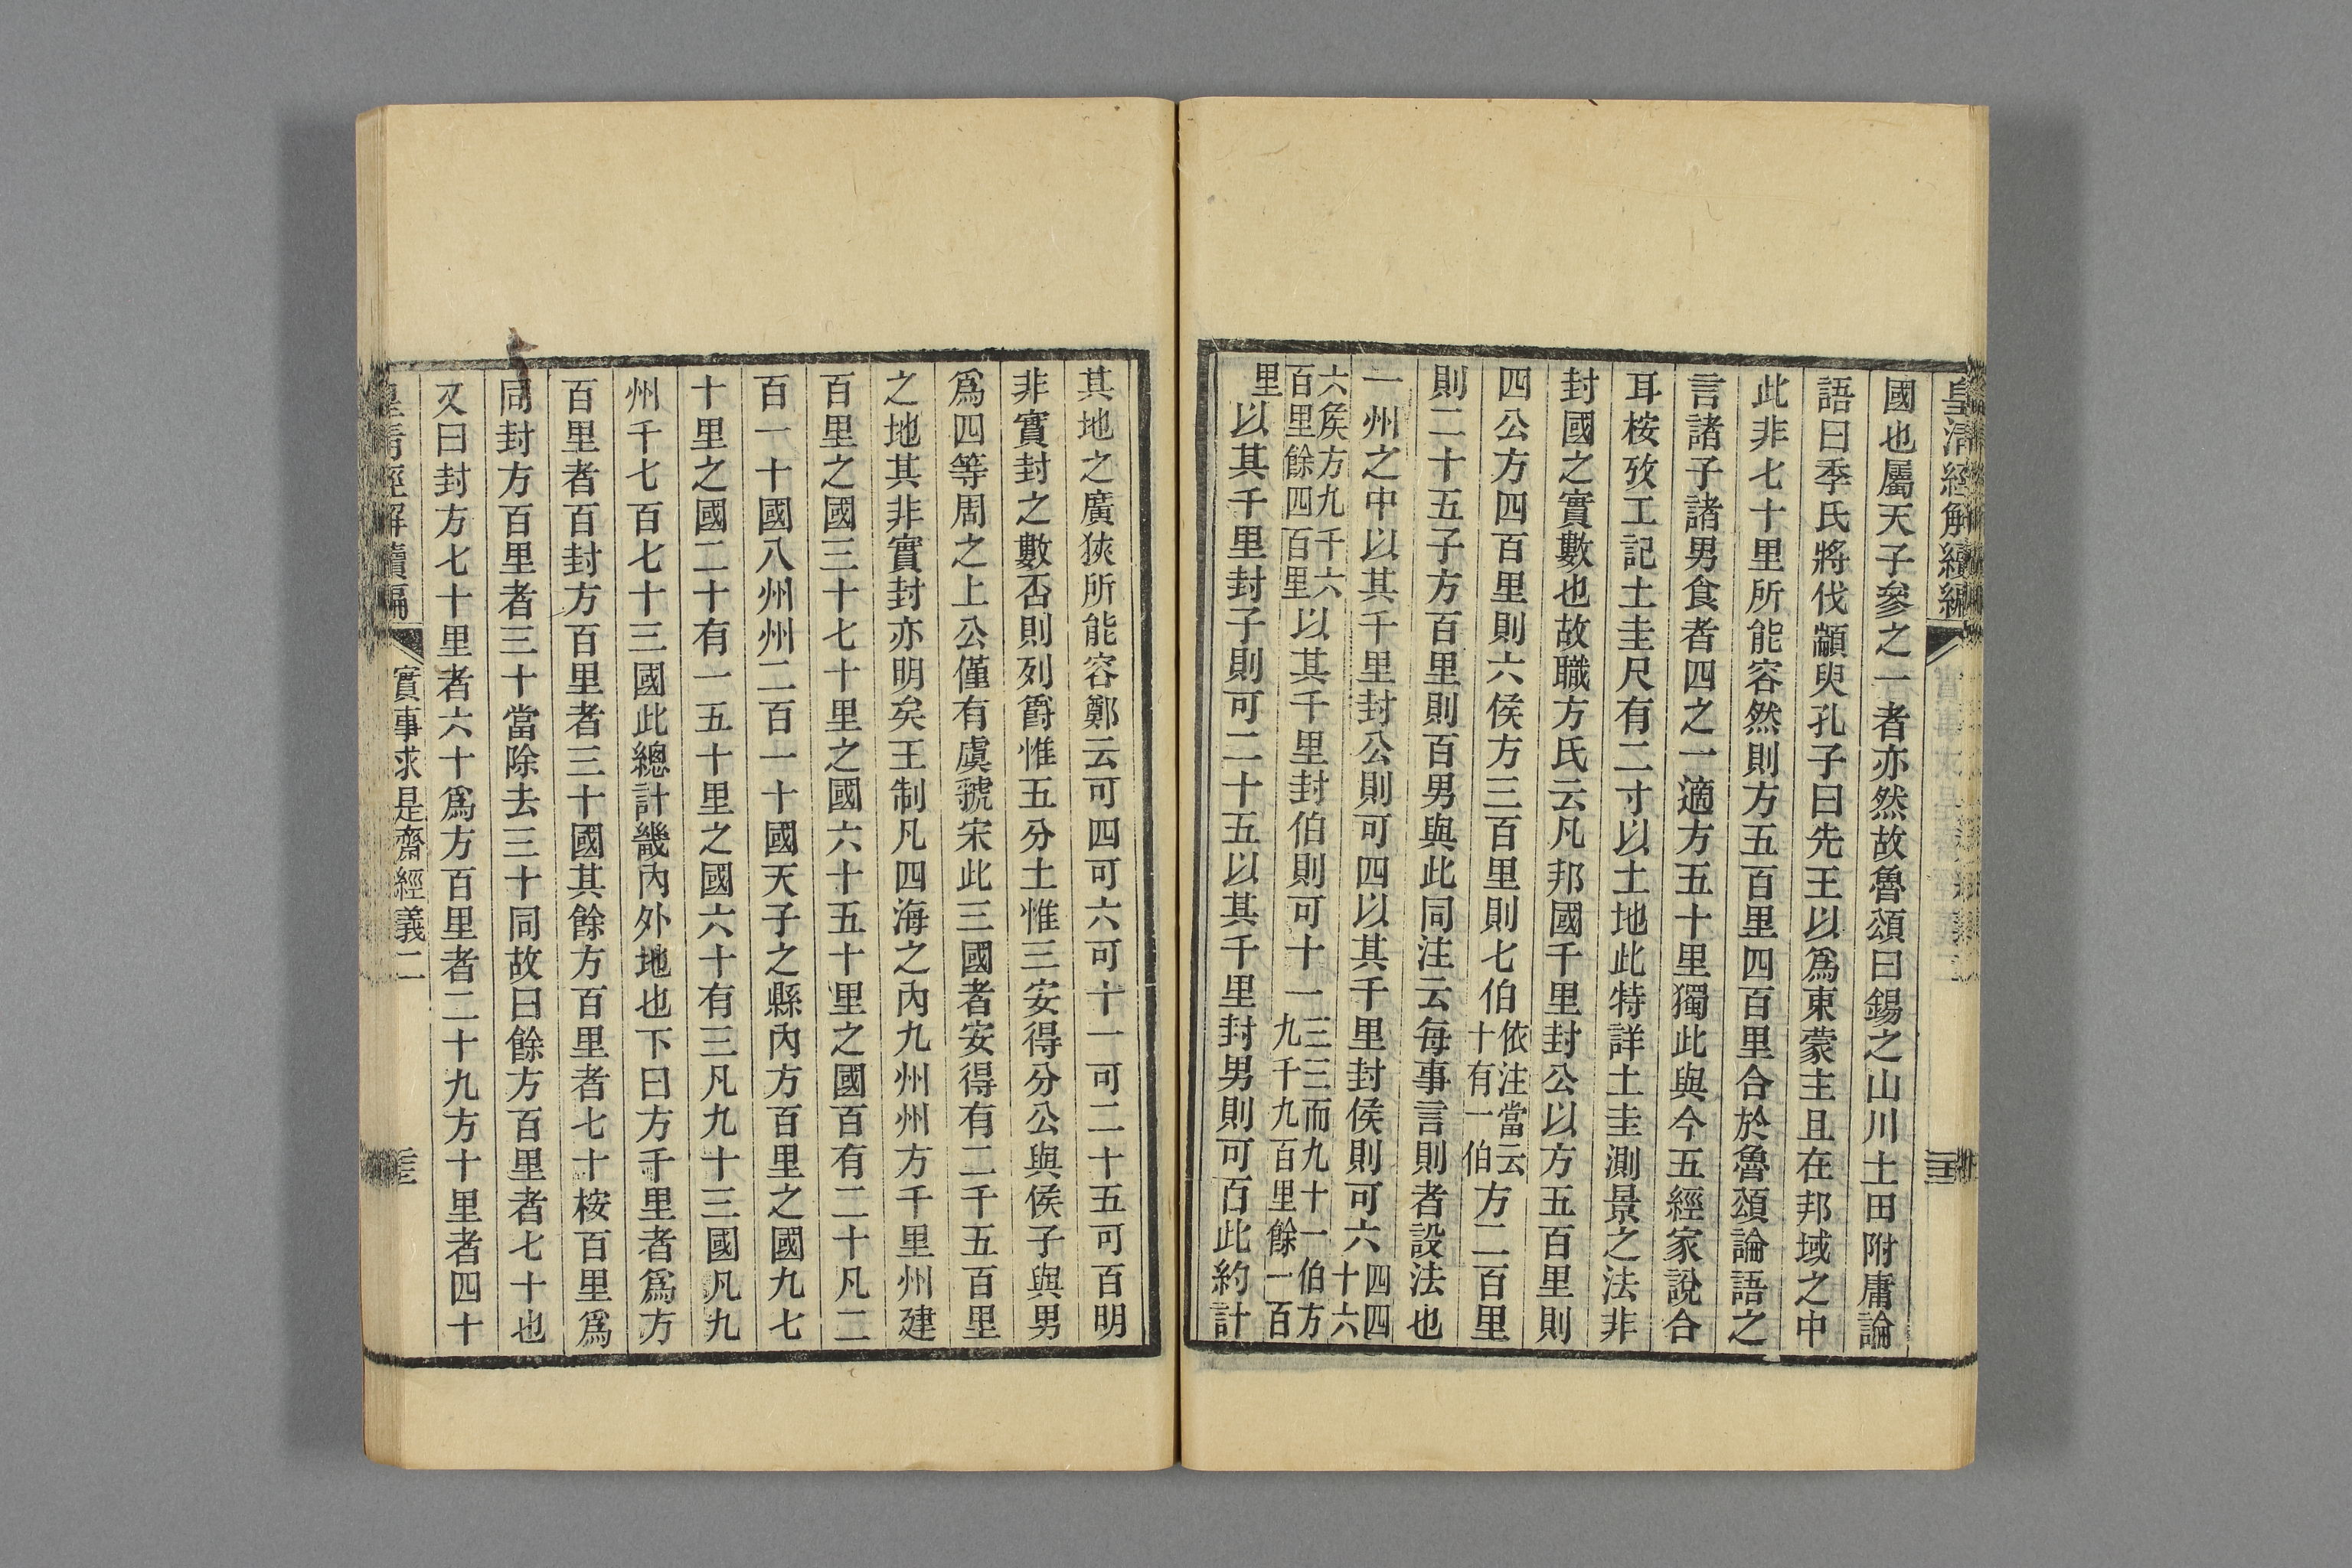 皇清經解續編
國也屬天子參之一者亦然故魯頌曰錫之山川土田附庸論
語曰季氏將伐顓臾孔子曰先王以爲東蒙主且在邦域之中
此非七十里所能容然則方五百里四百里合於魯頌論語之
言諸子諸男食者四之一適方五十里獨此與今五經家說合
耳桉攷工記土圭尺有二寸以土地此特詳土圭測景之法非
封國之實數也故職方氏云凡邦國千里封公以方五百里則
四公方四百里則六侯方三百里則七伯依注當云十有一伯方二百里
則二十五子方百里則百男與此同注云每事言則者設法也
一州之中以其千里封公則可四以其千里封侯則可六四四十六
六矦方九千六百里餘四百里以其千里封伯則可十一三三而九十一伯方九千九百里餘一百
里以其千里封子則可二十五以其千里封男則可百此約計
其地之廣狹所能容鄭云可四可六可十一可二十五可百明
非實封之數否則列爵惟五分土惟三安得分公與侯子與男
爲四等周之上公僅有虞虢宋此三國者安得有二千五百里
之地其非實封亦明矣王制凡四海之內九州州方千里州建
百里之國三十七十里之國六十五十里之國百有二十凡二
百一十國八州州二百一十國天子之縣內方百里之國九七
十里之國二十有一五十里之國六十有三凡九十三國凡九
州千七百七十三國此總計畿內外地也下曰方千里者爲方
百里者百封方百里者三十國其餘方百里者七十桉百里爲
同封方百里者三十當除去三十同故曰餘方百里者七十也
又曰封方七十里者六十爲方百里者二十九方十里者四十
皇清經解續編
實事求是齋經義二